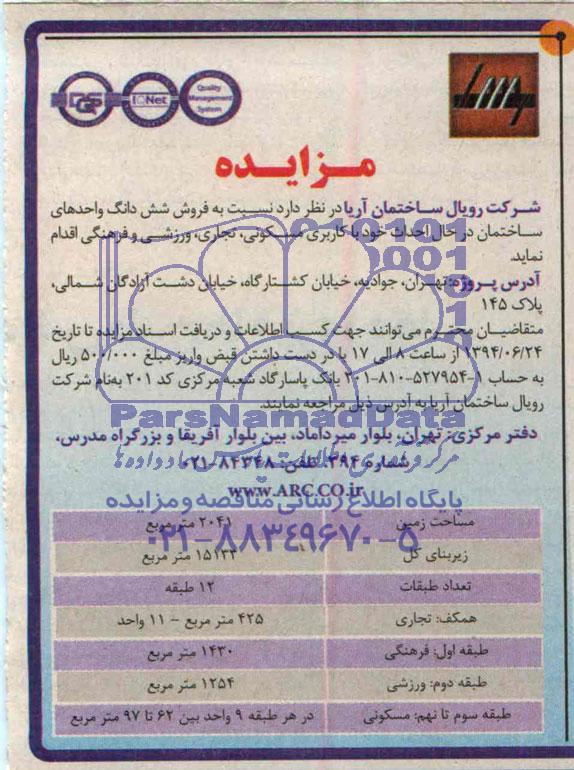 DQS
IQNet
Quality
Management
System
مزایده
شرکت رویال ساختمان آریا در نظر دارد نسبت به فروش شش دانگ واحدهای
ساختمان در حال احداث خود با کاربری مسکونی، تجاری، ورزشی و فرهنگی اقدام
نماید.
آدرس پروژه: تهران، جوادیه، خیابان کشتارگاه، خیابان دشت آزادگان شمالی،
پلاک ۱۴۵
متقاضیان محترم می‌توانند جهت کسب اطلاعات و دریافت اسناد مزایده تا تاریخ
۱۳۹۴/۰۶/۲۴ از ساعت ۸ الی ۱۷ با در دست داشتن قبض واریز مبلغ ۵۰۰/۰۰۰ ریال
به حساب ۱-۵۲۷۹۵۴-۸۱۰-۲۰۱ بانک پاسارگاد شعبه مرکزی کد ۲۰۱ به‌نام شرکت
رویال ساختمان آریا به آدرس ذیل مراجعه نمایند.
ParsNamadData
دفتر مرکزی: تهران، بلوار میرداماد، بین بلوار آفریقا و بزرگراه مدرس،
شماره ۳۹۴، تلفن: ۸۴۳۴۸-۰۲۱
www.ARC.CO.ir
پایگاه اطلاع رسانی مناقصه و مزایده
۰۲۱-۸۸۳۴۹۶۷۰-۵
مساحت زمین ۲۰۴۱ متر مربع
زیربنای کل ۱۵۱۳۳ متر مربع
تعداد طبقات ۱۲ طبقه
همکف: تجاری ۴۲۵ متر مربع - ۱۱ واحد
طبقه اول: فرهنگی ۱۴۳۰ متر مربع
طبقه دوم: ورزشی ۱۲۵۴ متر مربع
طبقه سوم تا نهم: مسکونی در هر طبقه ۹ واحد بین ۶۲ تا ۹۷ متر مربع